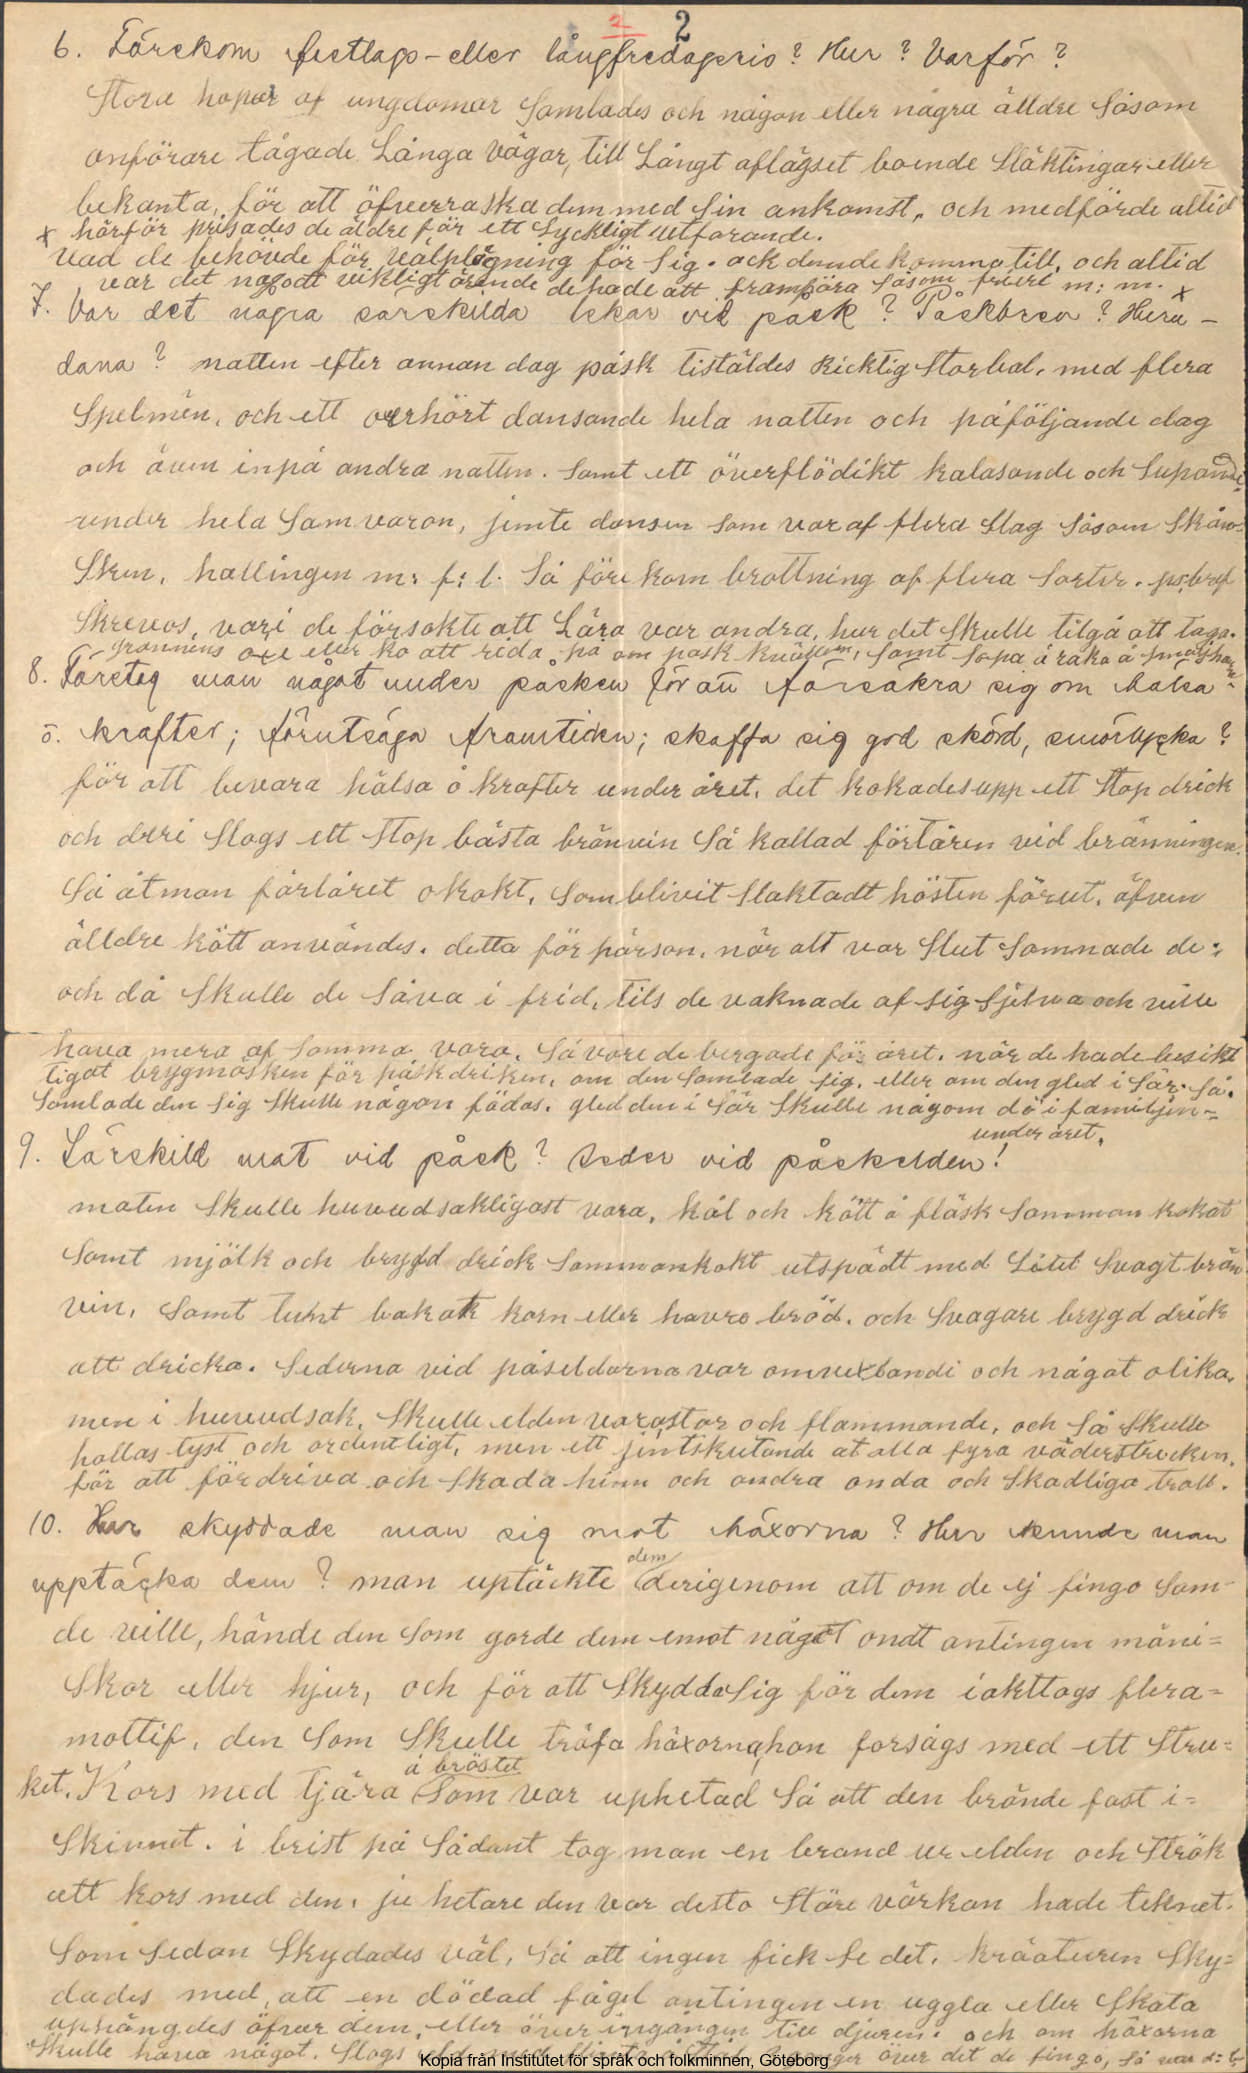 2 2
6. Förekom fastlags- eller långfredagsris? Hur? Varför?
Stora hopar af ungdomar Samlades och någon eller några älldre Såsom
anförare tågade Långa Vägar, till Långt aflägset boende Släktingar eller
bekanta, för att öfverraska dem med Sin ankomst, och medförde altid
x härför prisades de äldre för ett Lyckligt utförande.
vad de behövde för välplägning för Sig. ock dem de kommo till, och alltid
var det något viktigt ärende de hade att framföra Såsom frieri m: m. x
7. Var det några särskilda lekar vid påsk? Påskbrev? Huru-
dana? natten efter annan dag påsk tistäldes Ricktig Storbal, med flera
Spelmän, och ett oerhört dansande hela natten och påföljande dag
och även inpå andra natten. Samt ett överflödikt kalasande och Supande
under hela Samvaron, jemte dansen Som var af flera Slag Såsom Skåns-
Sken, hallingen m: f: l. Så före kom brottning af flera Sorter.
Skrevos, vari de försökte att Lära var andra, hur det Skulle tilgå att taga
grannens oxe eller ko att rida på om påsk samt
8. Företog man något under påsken för att försäkra sig om hälsa
o. krafter; förutsäga framtiden; skaffa sig god skörd, smörlycka?
för att bevara hälsa å krafter under året, det kokades upp ett Stop drick
och deri Slogs ett Stop bästa bränvin Så kallad förtåren vid bränningen.
Så åt man fårlåret okokt, Som blivit Slaktadt hösten förut, äfven
älldre kött användes. detta för pårson, når alt var Slut Somnade de:
och då Skulle de Såva i frid, tils de vaknade af sig Sjelva och ville
hava mera af Samma vara, Så vore de bergade för året. når de hade besikt
tigat brygmäsken för påskdriken, om den Samlade Sig, eller om den gled i Sär. Så.
Samlade den Sig Skulle någon födas. gled den i Sär Skulle någom dö i familjen-
under året.
9. Särskild mat vid påsk? Seder vid påskelden!
maten Skulle huvudsakligast vara, kål och kött å fläsk Samman kokat
Samt mjölk och brygd drick Sammankokt utspädt med Litet Svagt brän
vin, Samt tunt bakat korn eller havre bröd. och Svagare brygd drick
att dricka. Sederna vid påseldarna var omvexlandi och något olika,
men i huvudsak, Skulle elden vara stor och flammande, och Så Skulle
hållas tyst och ordentligt, men ett jintskutande åt alla fyra väderstrecken,
för att fördriva och Skada hinn och andra onda och Skadliga troll.
10. Hur skyddade man sig mot häxorna? Hur kunde man
upptäcka dem? man uptäckte dem derigenom att om de ej fingo Som
de ville, hände den Som gorde dem emot något ondt antingen mäni=
Skor eller hjur, och för att Skydda Sig för dem iakttogs flera=
mottif, den Som Skulle träfa häxorna, han forsågs med ett Stru=
ket. Kors med tjära å bröstet Som var uphetad Så att den brände fast i=
Skinnet. i brist på Sådant tog man en brand ur elden och Strök
ett kors med den, ju hetare den var desto Störe värkan hade teknet.
Som Sedan Skydades väl, Så att ingen fick Se det. kräaturen Sky=
dades med, att en dödad fågel antingen en uggla eller Skata
uphängdes öfver dem, eller över ingången till djuren. och om häxorna
Skulle hava något. Slogs eld med över det de fingo, Så var d:
Kopia från Institutet för språk och folkminnen, Göteborg